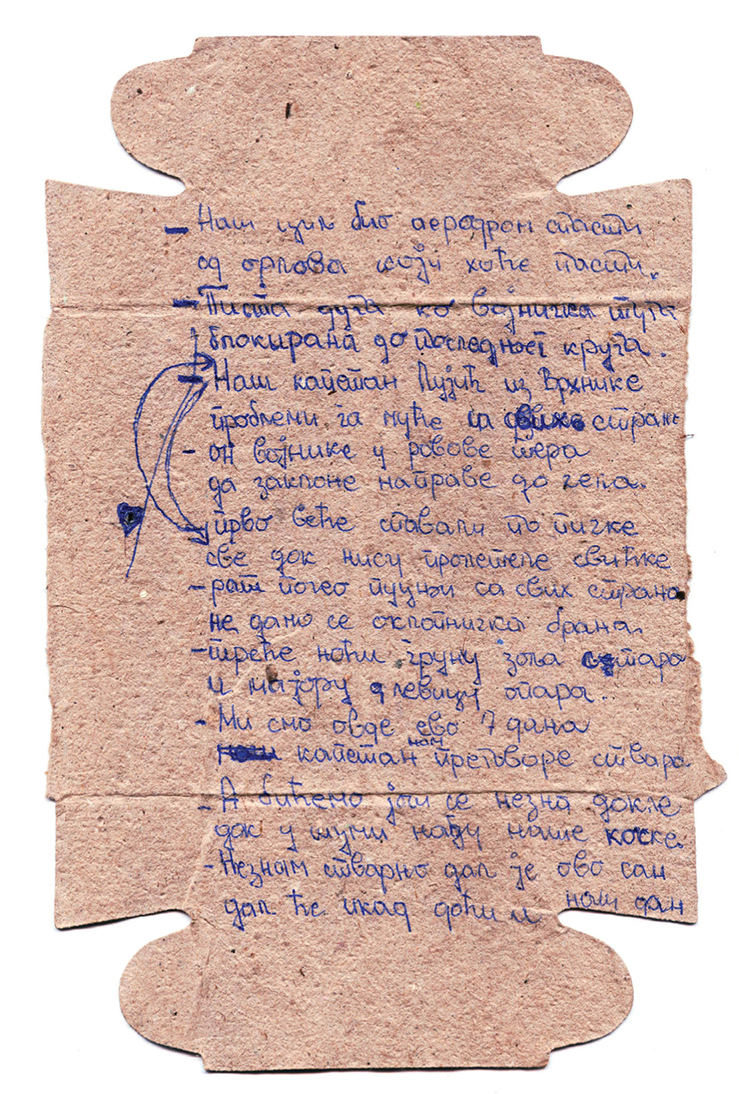 - Наш циљ био аеродром спасти
од орлова који хоће пасти.
- Писта дуга ко војничка туга
блокирана до последњег круга.
- Наш капетан Пујић из Врхнике
проблеми га муче са свих страна
- он војнике у ровове тера
да заклоне направе до
прво вече спавали по
све док нису пролетеле свићке
- рат почео пуцњи са свих страна
не дамо се оклопничка брана.
- треће ноћи груну зоља стара
и мајору левицу опара..
- Ми смо овде ево 7 дана
капетан нам преговоре ствара
- А бићемо још се незна докле
док у шуми нађу наше коске.
- Незнам стварно дал је ово сан
дал ће икад доћи и наш дан